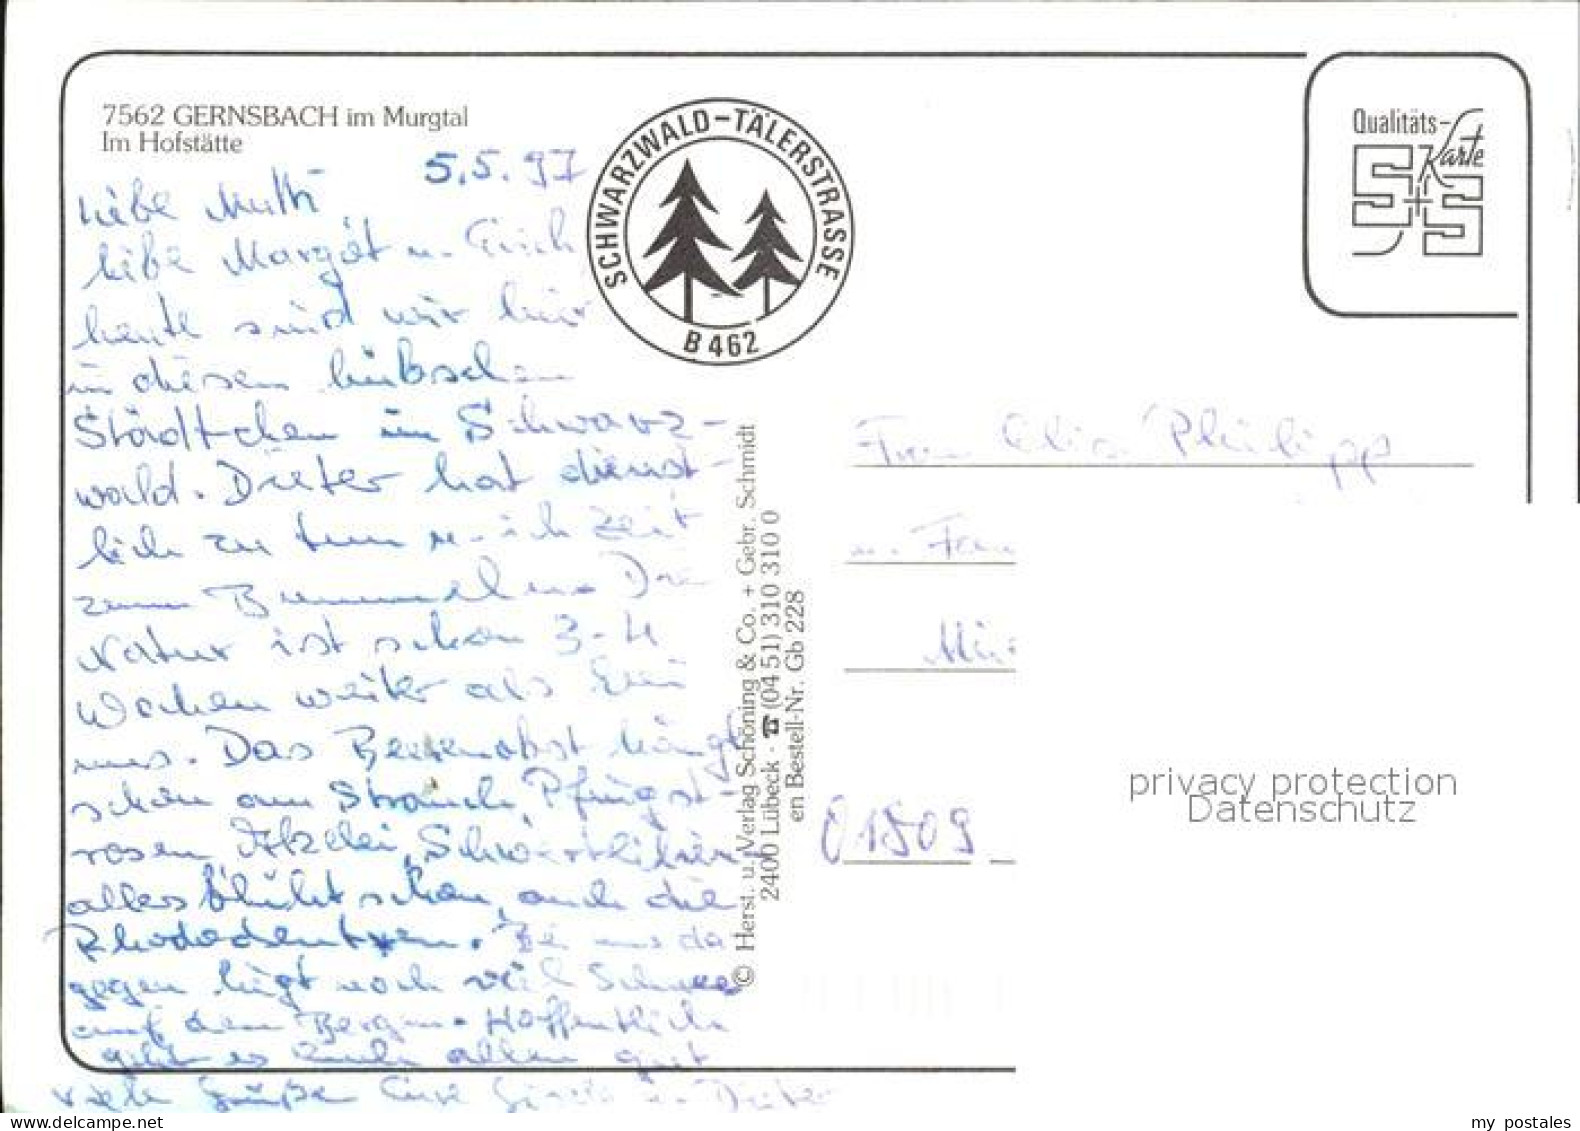 7562 GERNSBACH im Murgtal
Im Hofstätte
5.5.97
SCHWARZWALD-TÄLERSTRASSE
B 462
Qualitäts-
Karte
S+S
Liebe Mutti,
liebe Margot u. Erich
heute sind wir hier
in diesem hübschen
Städtchen im Schwarz-
wald. Dieter hat dienst-
lich zu tun u. ich Zeit
zum Bummeln. Die
Natur ist schon 3-4
Wochen weiter als bei
uns. Das Beerenobst hängt
schon am Strauch, Pfingst-
rosen, Akelei, Schwertlilien
alles blüht schon, auch die
Rhododentren. Bei uns da
gegen liegt noch viel Schnee
auf den Bergen. Hoffentlich
geht es Euch allen gut
viele Grüße Eure u. Dieter
© Herst. u. Verlag Schöning & Co. + Gebr. Schmidt
2400 Lübeck · ☎ (04 51) 310 310 0
en Bestell-Nr. Gb 228
Frau Philipp
u. Fam
01809
privacy protection
Datenschutz
my postales